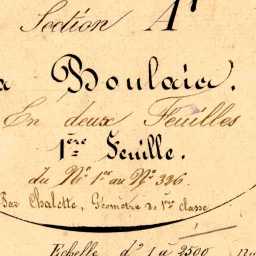 Section A
a Boulaia.
En deux Feuilles
1ère Feuille.
du N° 1er au N° 336.
Par Chalette, Géomètre de 1re Classe
Echelle d' 1 à 2500